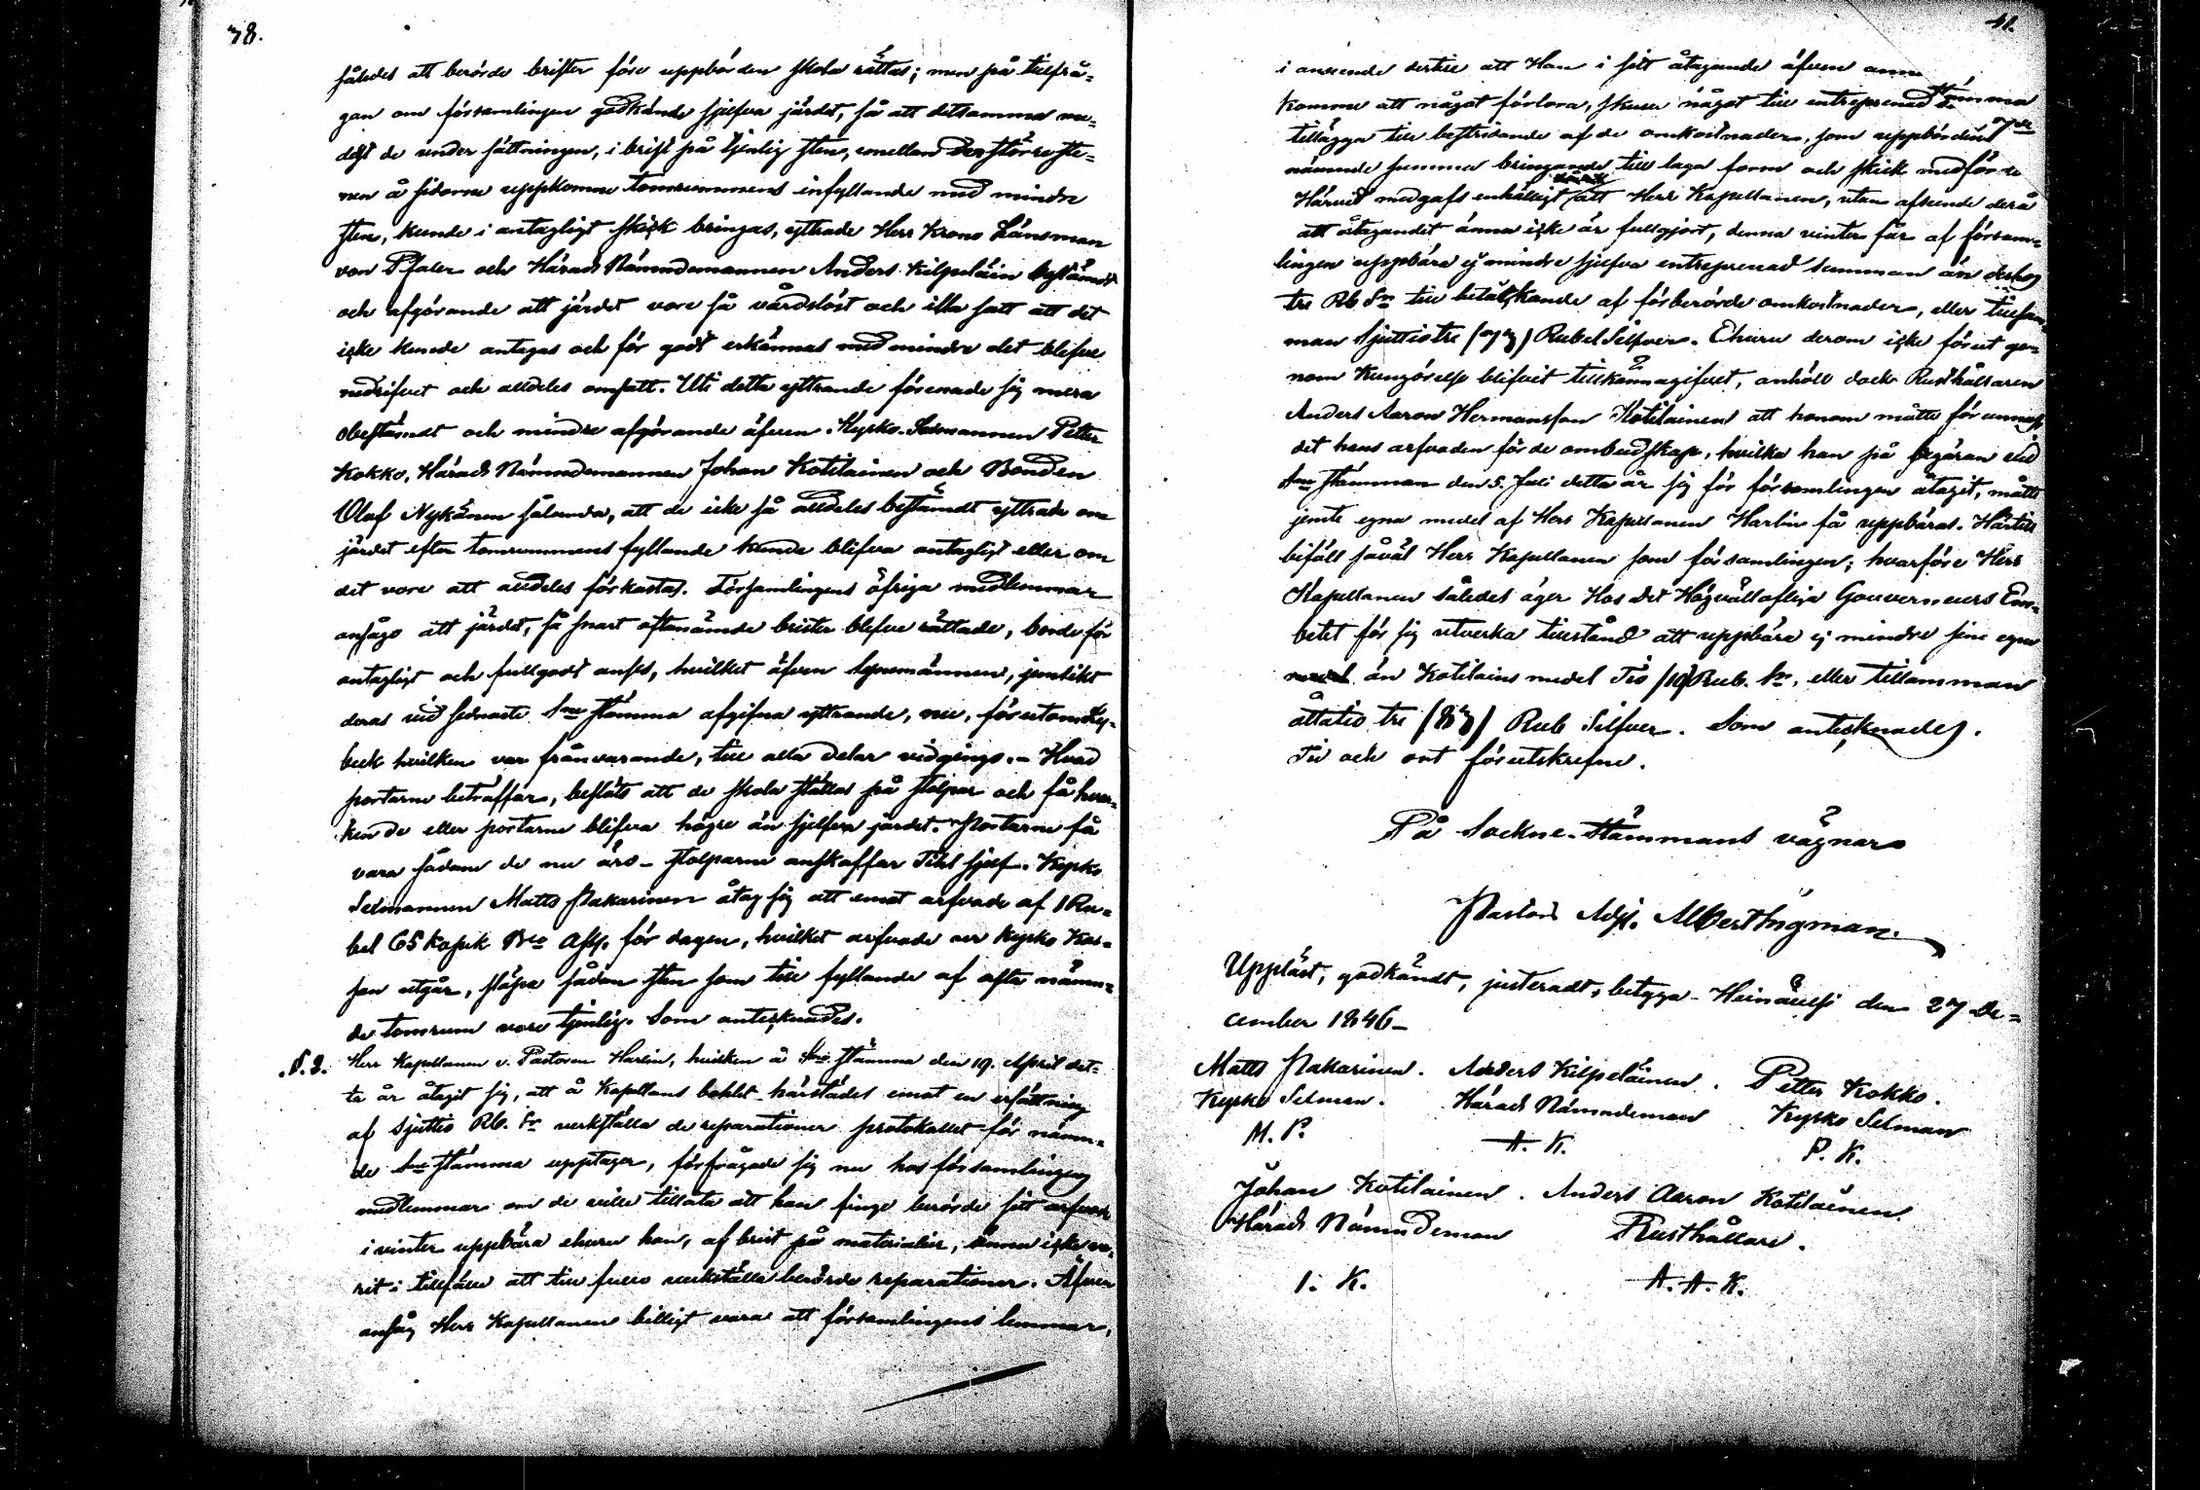 38.
således att berörde brister före uppbörden skola rättas; men på tillfrå-
gan om församlingen godkände sjelfva järdet, så att detsamma me-
delst de under sättningen, i brist på tjenlig sten, emellan de större ste-
nen å sidorne uppkomne tomrummens infyllande med mindre
sten, kunde i antagligt skick bringas, yttrade Herr Krono Länsman
von Pfaler och Härads Nämndemannen Anders Kilpeläin bestämdt
och afgörande att järdet vore så vårdslöst och illa satt att det
icke kunde antagas och för godt erkännas med mindre det blefve
nedrifvet och alldeles omsatt. Uti detta yttrande förenade sig mera
obestämdt och mindre afgörande äfven Kyrko Sexmannen Petter
Kokko, Härads Nämndemannen Johan Kotilainen och Bonden
Olof Nykänen sålunda, att de icke så alldeles bestämdt yttrade om
järdet efter tomrummens fyllande kunde blifva antagligt eller om
det vore att alldeles förkastas. Församlingens öfriga medlemmar
ansågo att järdet, så snart oftanämde brister blefve rättade, borde för
antagligt och fullgodt anses, hvilket äfven synemännen, jemlikt
deras vid sednaste Sne stämma afgifna yttrande, nu, förutom Ly-
beck hvilken var frånvarande, till alla delar vidgingo. - Hvad
portarne beträffar, beslöts att de skola ställas på stolpar och få hvar-
ken de eller portarne blifva högre än sjelfva järdet. Portarne få
vara sådane de nu äro - stolparne anskaffar Tihl sjelf. Kyrko
Sexmannen Matts Pakarinen åtog sig att emot arfvode af 1 Ru-
bel 65 Kopek Bco Ass. för dagen, hvilket arfvode ur Kyrko Kas-
san utgår, släpa sådan sten som till fyllande af ofta nämn-
de tomrum vore tjenlig. Som antecknades.
§. 2. Herr Kapellanen v. Pastoren Harlin, hvilken å Sne stämma den 19. April det-
ta år åtagit sig, att å Kapellans bohlet härstädes emot en ersättning
af sjuttio Rb. Sr verkställa de reparationer protokollet för nämn-
de Sne stämma upptager, förfrågade sig nu hos församlingens
medlemmar om de ville tillåta att han finge berörde sitt arfvode
i vinter uppbära ehuru han, af brist på materialier, ännu icke va-
rit i tillfälle att till fullo verkställa berörde reparationer. Äfven
ansåg Herr Kapellanen billigt vara att församlingens lemmar,
41.
i anseende dertill att Han i sitt åtagande äfven annars
komme att något förlora, skulle något till entreprenad summa
tillägga till bestridande af de omkostnader, som uppbörden
nämnde summa bringande till laga form och skick medförde
Härvid medgafs enhälligt att Herr Kapellanen, utan afseende derå
att åtagandet ännu icke är fullgjort, denna vinter får af försam-
lingen uppbära ej mindre sjelfva entreprenad summan än derhos
tre Rb Sr till betäckande af förberörde omkostnader, eller tillsam-
man sjuttiotre (73) Rubel Silfver. Ehuru derom icke förut ge-
nom kungörelse blifvit tillkännagifvet, anhöll dock Rusthållaren
Anders Aaron Hermansson Kotilainen att honom måtte förunnas
det hans arfvoden för de ombudskap, hvilka han på begäran vid
Sne stämman den 5. Juli detta år sig för församlingen åtagit, måtte
jemte egna medel af Herr Kapellanen Harlin få uppbäras. Härtill
biföll såväl Herr Kapellanen som församlingen; hvarföre Herr
Kapellanen således äger Hos Det Högvällofliga Gouverneurs Em-
betet för sig utverka tillstånd att uppbära ej mindre sine egna
medel än Kotilains medel Tio (10) Rub. Sr, eller tillsamman
åttatio tre (83) Rub Silfver. Som antecknades.
Tid och ort förutskrefne.
På Sockne-Stämmans vägnar
Pastors Adj. Albert Ingman.
Uppläst, godkändt, justeradt, betyga - Heinävesi den 27 De-
cember 1846 -
Matts Pakarinen. Anders Kilpeläinen. Petter Kokko.
Kyrko Sexman. Härads Nämndeman Kyrko Sexman
M. P. A. K. P. K.
Johan Kotilainen. Anders Aaron Kotilainen.
Härads Nämndeman Rusthållare.
I. K. A. A. K.